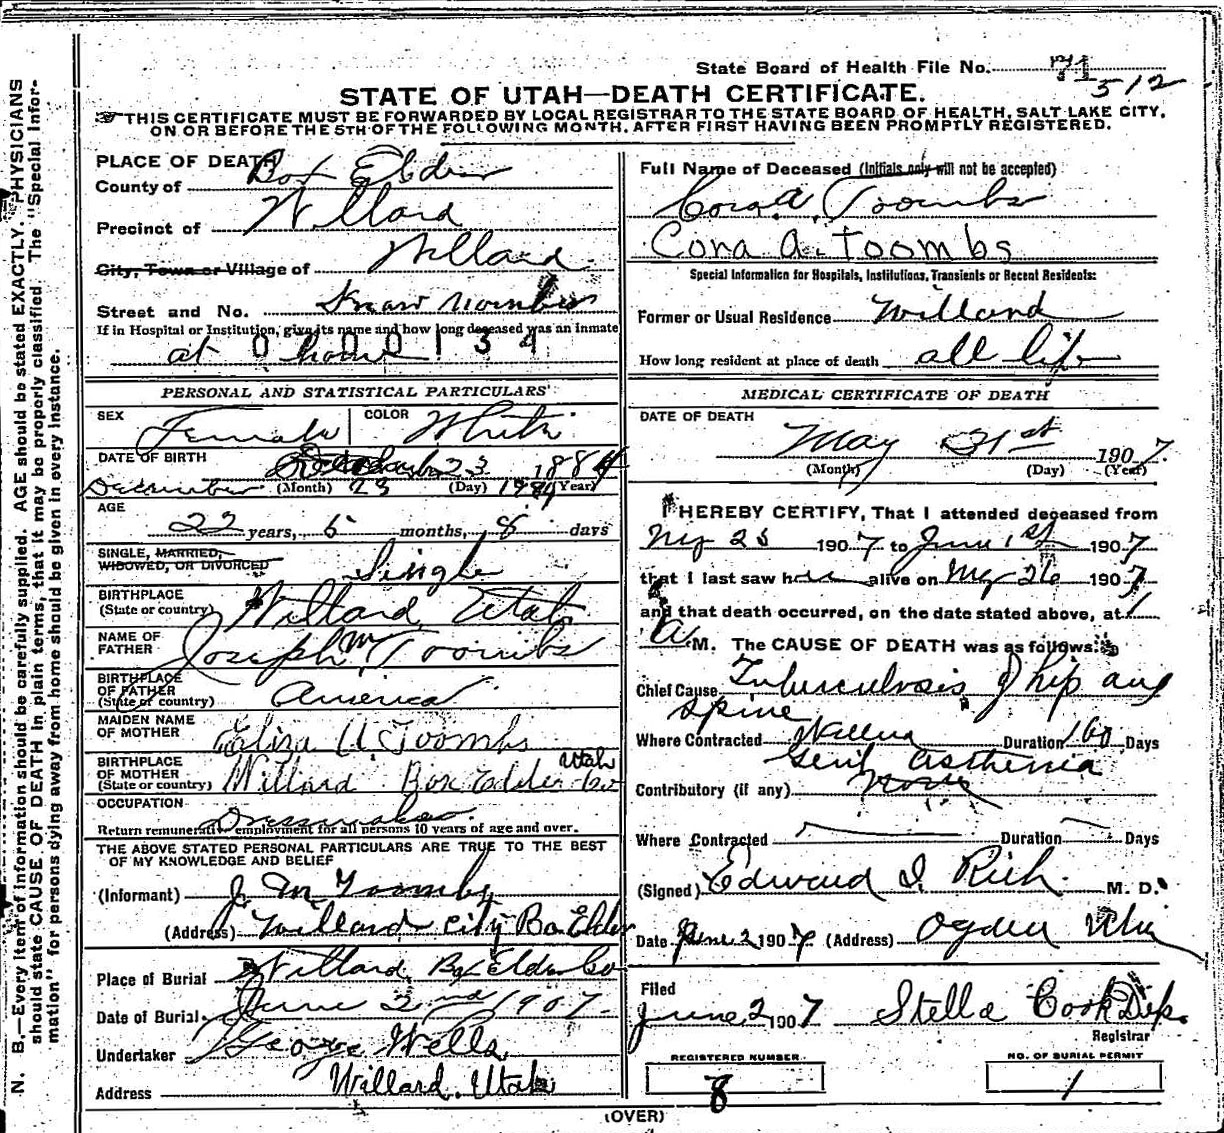 State Board of Health File No. 71
512
STATE OF UTAH—DEATH CERTIFICATE.
THIS CERTIFICATE MUST BE FORWARDED BY LOCAL REGISTRAR TO THE STATE BOARD OF HEALTH, SALT LAKE CITY,
ON OR BEFORE THE 5TH OF THE FOLLOWING MONTH, AFTER FIRST HAVING BEEN PROMPTLY REGISTERED.
N. B.—Every item of information should be carefully supplied. AGE should be stated EXACTLY. PHYSICIANS
should state CAUSE OF DEATH in plain terms, that it may be properly classified. The "Special Infor-
mation" for persons dying away from home should be given in every instance.
PLACE OF DEATH
County of Box Elder
Precinct of Willard
City, Town or Village of Willard
Street and No.
If in Hospital or Institution, give its name and how long deceased was an inmate
at home
0 0 0 1 3 4
PERSONAL AND STATISTICAL PARTICULARS
SEX Female COLOR White
DATE OF BIRTH 23 1884
December 23 1984
(Month) (Day) (Year)
AGE
22 years, 5 months, 8 days
SINGLE, MARRIED,
WIDOWED, OR DIVORCED Single
BIRTHPLACE
(State or country) Willard Utah
NAME OF
FATHER Joseph M Toombs
BIRTHPLACE
OF FATHER
(State or country) America
MAIDEN NAME
OF MOTHER Eliza A Toombs
BIRTHPLACE
OF MOTHER
(State or country) Willard Box Elder Co Utah
OCCUPATION Dressmaker
Return remunerative employment for all persons 10 years of age and over.
THE ABOVE STATED PERSONAL PARTICULARS ARE TRUE TO THE BEST
OF MY KNOWLEDGE AND BELIEF
(Informant) J. M. Toombs
(Address) Willard City Box Elder
Place of Burial Willard Box Elder Co
Date of Burial June 2nd 1907.
Undertaker George Wells
Address Willard, Utah
Full Name of Deceased (Initials only will not be accepted)
Cora A. Toombs
Cora A. Toombs
Special Information for Hospitals, Institutions, Transients or Recent Residents:
Former or Usual Residence Willard
How long resident at place of death all life
MEDICAL CERTIFICATE OF DEATH
DATE OF DEATH
May 31st 1907.
(Month) (Day) (Year)
I HEREBY CERTIFY, That I attended deceased from
My 25 1907 to June 1st 1907
that I last saw her alive on My 26 1907
and that death occurred, on the date stated above, at 1
A M. The CAUSE OF DEATH was as follows:
Chief Cause Tuberculosis of hip and
spine
Where Contracted Willard Duration 160 Days
Genl asthenia
Contributory (if any) None
Where Contracted Duration Days
(Signed) Edward I. Rich. M. D.
Date June 2 1907 (Address) Ogden Utah
Filed
June 2 1907 Stella Cook Dep.
Registrar
REGISTERED NUMBER
8
NO. OF BURIAL PERMIT
1
(OVER)